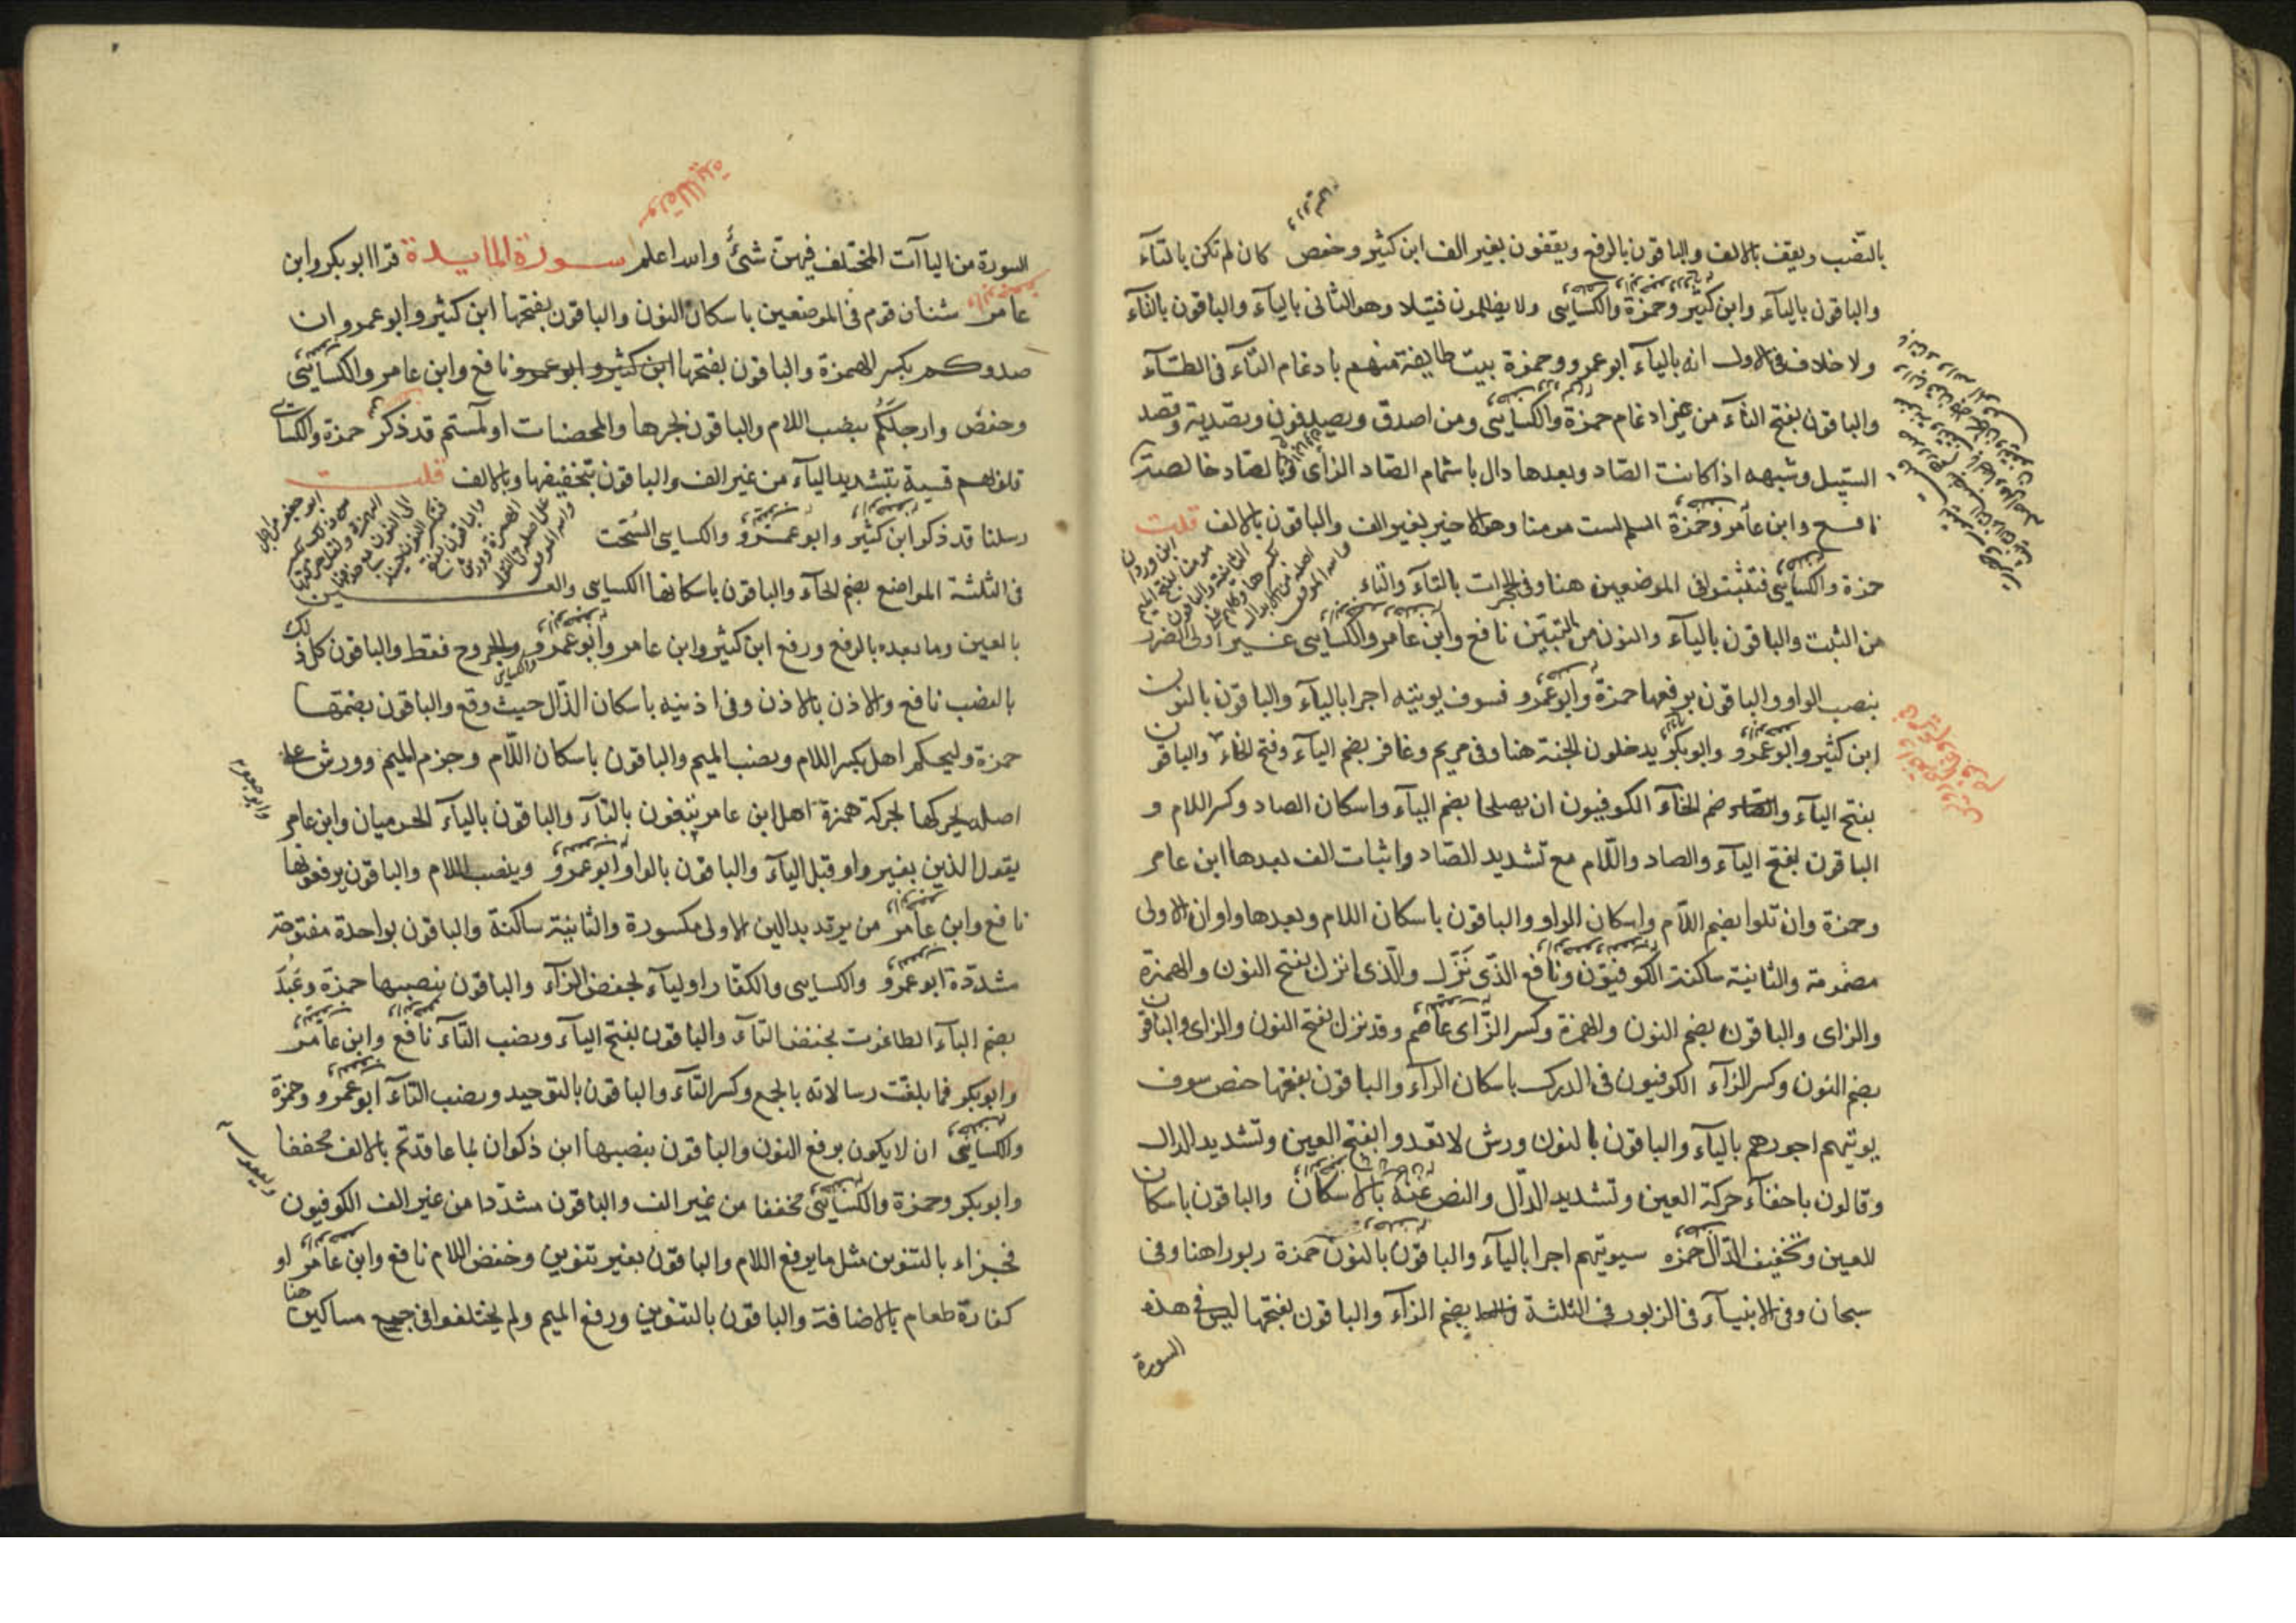 بالنصب ويقف بالالف والباقون بالرفع ويقفون بغير الف ابن كثير وحفص كان لم تكن بالتآء
والباقون باليآء وابن كثير وحمزة والكسايى ولا يظلمون فتيلا وهو الثانى باليآء والباقون بالتآء
ولا خلاف فى الاول انه باليآء ابو عمرو وحمزة بيت طايفة منهم بادغام التآء فى الطآء
والباقون بفتح التآء من غير ادغام حمزة والكسايى ومن اصدق ويصدفون وتصدية وقصد
السبيل وشبهه اذا كانت الصاد وبعدها دال باشمام الصاد الزاى والباقون بالصاد خالصة
نافع وابن عامر وحمزة السلم لست مومنا وهو الاخير بغير الف والباقون بالالف قلت
حمزة والكسايى فتثبتوا فى الموضعين هنا وفى الحجرات بالتآء والثاء
من الثبت والباقون باليآء والنون من التبيّن نافع وابن عامر والكسايى غير اولى الضرر
بنصب الواو والباقون برفعها حمزة وابو عمرو فسوف يوتيه اجرا باليآء والباقون بالنون
ابن كثير وابو عمرو وابو بكر يدخلون الجنة هنا وفى مريم وغافر بضم اليآء وفتح الخاء والباقون
بفتح اليآء وضم الخآء الكوفيون ان يصلحا بضم اليآء واسكان الصاد وكسر اللام و
الباقون بفتح اليآء والصاد واللّام مع تشديد الصّاد واثبات الف بعدها ابن عامر
وحمزة وان تلوا بضم اللّام واسكان الواو والباقون باسكان اللام وبعدها واوان الاولى
مضمومة والثانية ساكنة الكوفيّون ونافع الذّى نَزّل والّذى انزل بفتح النون والهمزة
والزاى والباقون بضم النون والهمزة وكسر الزّاى عاصم وقد نزل بفتح النون والزاى والباقون
بضم النون وكسر الزآء الكوفيون فى الدرك باسكان الرآء والباقون بفتحها حفص سوف
يوتيهم اجورهم باليآء والباقون بالنون ورش لا تعدوا بفتح العين وتشديد الدال
وقالون باخفآء حركة العين وتشديد الدّال والنص عنه بالاسكان والباقون باسكان
العين وتخفيف الدّال حمزه سيوتيهم اجرا باليآء والباقون بالنون حمزة زبورا هنا وفى
سبحان وفى الانبيآء فى الزبور فى الثلثة بضم الزآء والباقون بفتحها ليس فى هذه
السورة
سورة المايدة
السورة من الياآت المختلف فيهن شئٌ والله اعلم سورة المايدة قرا ابو بكر وابن
عامر شنان قوم فى الموضعين باسكان النون والباقون بفتحها ابن كثير وابو عمرو ان
صدوكم بكسر الهمزة والباقون بفتحها ابن كثير وابو عمرو نافع وابن عامر والكسايى
وحفص وارجلَكُم بنصب اللام والباقون بجرها والمحصنات او لمستم قد ذكر حمزة والكسايى
قلوبهم قسية بتشديد اليآء من غير الف والباقون بتخفيفها وبالالف قلت
رسلنا قد ذكر ابن كثير وابو عمرو والكسايى السُحُت
فى الثلثة المواضع بضم الحآء والباقون باسكانها الكسايى والعين
بالعين وما بعده بالرفع ورفع ابن كثير وابن عامر وابو عمرو والجروح فقط والباقون كل ذلك
بالنصب نافع والاذن بالاذن وفى اذنيه باسكان الذّال حيث وقع والباقون بضمّها
حمزة وليحكم اهل بكسر اللام ونصب الميم والباقون باسكان اللّام وجزم الميم وورش على
اصله يحركها بحركة همزة اهل ابن عامر تبغون بالتآء والباقون باليآء الحرميان وابن عامر
يقول الذين بغير واو قبل اليآء والباقون بالواو ابو عمرو وبنصب اللام والباقون برفعها
نافع وابن عامر من يرتدد بدالين الاولى مكسورة والثانية ساكنة والباقون بواحدة مفتوحة
مشدّدة ابو عمرو والكسايى والكفّار اوليآء بخفض الرآء والباقون بنصبها حمزة وعَبُدَ
بضم البآء الطاغوت بخفض التآء والباقون بفتح البآء ونصب التآء نافع وابن عامر
وابو بكر فما بلغت رسالاته بالجمع وكسر التآء والباقون بالتوحيد ونصب التآء ابو عمرو وحمزة
والكسايى ان لا يكون برفع النون والباقون بنصبها ابن ذكوان بما عاقدتم بالالف مخففا
وابو بكر وحمزة والكسايى مخففا من غير الف والباقون مشدّدا من غير الف الكوفيون
فجزاء بالتنوين مثل ما برفع اللام والباقون بغير تنوين وخفض اللام نافع وابن عامر او
كفارة طعام بالاضافة والباقون بالتنوين ورفع الميم ولم يختلفوا فى جمع مساكين هنا